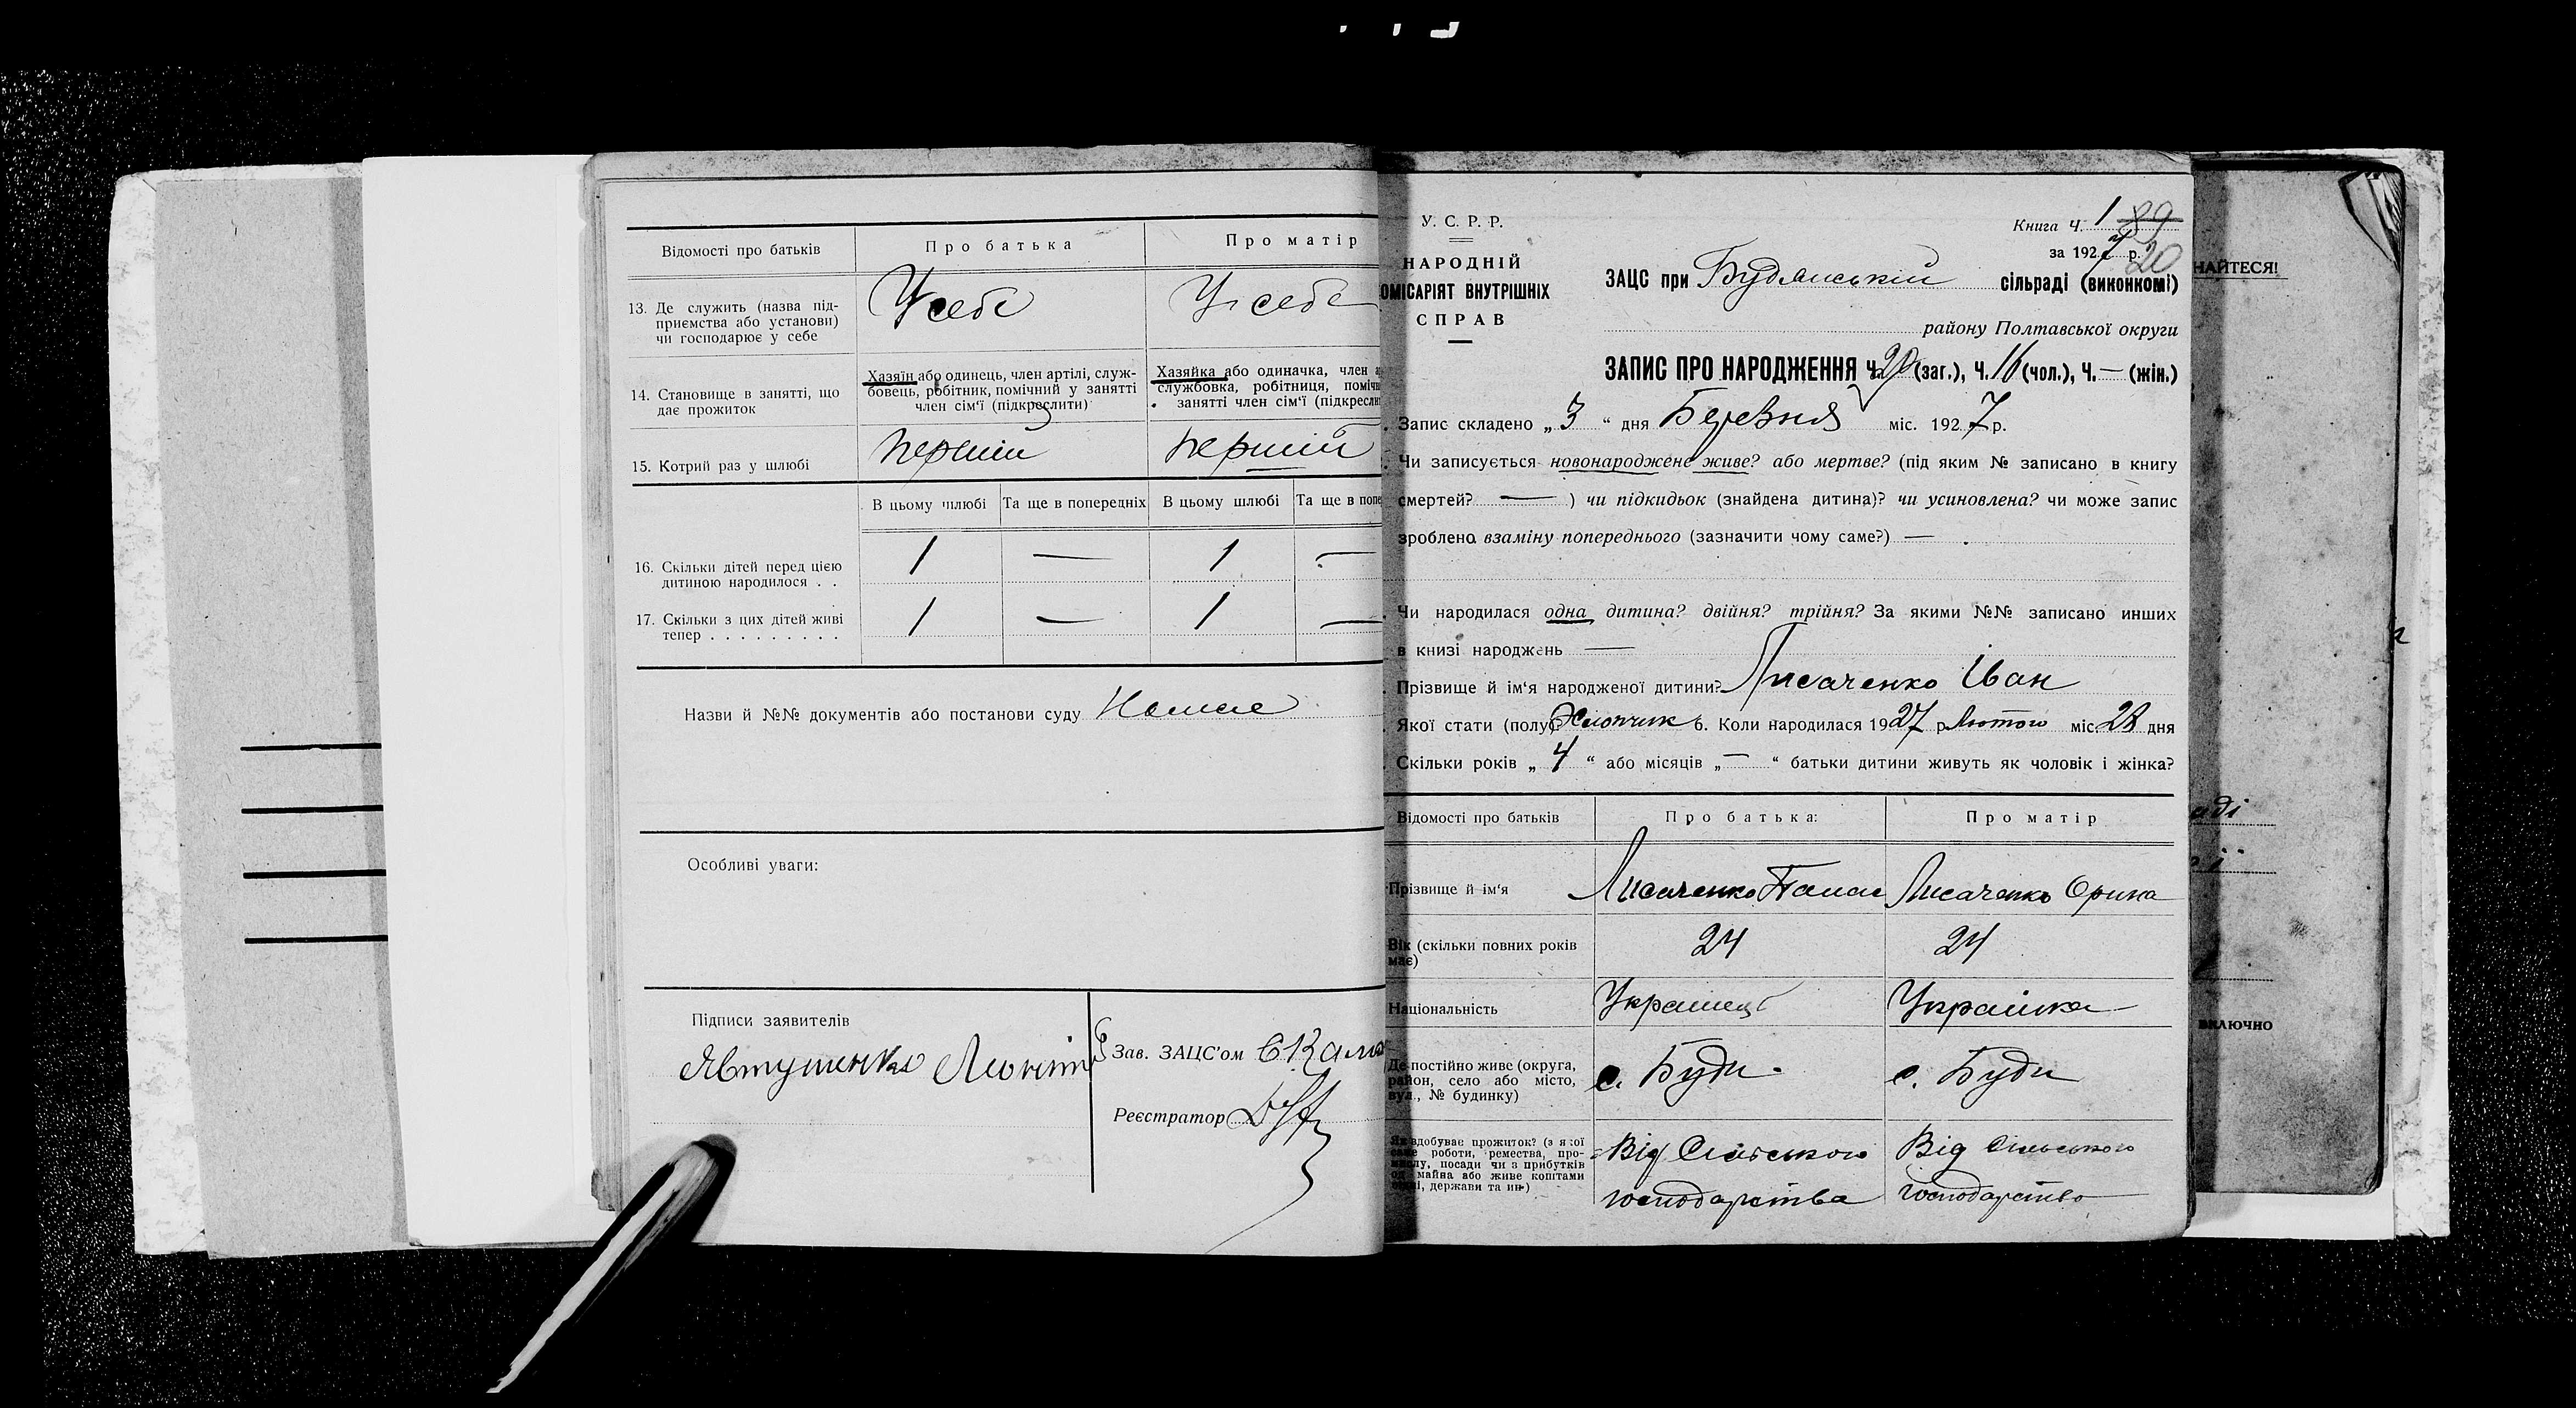 Відомості про батьків
Про батька
Про матір
13. Де служить (назва під-
приємства або установи)
чи господарює у себе
У себе
У себе
14. Становище в занятті, що
дає прожиток
Хазяїн або одинець, член артілі, служ-
бовець, робітник, помічний у занятті
член сім'ї (підкреслити)
Хазяйка або одиначка, член
службовка, робітниця, поміч
занятті член сім'ї (підкресли
15. Котрий раз у шлюбі
перший
перший
В цьому шлюбі
Та ще в попередніх
В цьому шлюбі
Та ще в попе
16. Скільки дітей перед цією
дитиною народилося . .
1 — 1 —
17. Скільки з цих дітей живі
тепер . . . . . . . . .
1 — 1 —
Назви й №№ документів або постанови суду Немає
Особливі уваги:
Підписи заявителів
Явтушенко
Зав. ЗАЦС'ом
Реєстратор
У. С. Р. Р.
НАРОДНІЙ
ОМІСАРІЯТ ВНУТРІШНІХ
СПРАВ
Книга Ч. 1 89
за 1927 р. 20
ЗАЦС при Будянській сільраді (виконкомі)
району Полтавської округи
ЗАПИС ПРО НАРОДЖЕННЯ Ч. 20 (заг.), Ч. 16 (чол.), Ч. — (жін.)
Запис складено „ 3 “ дня Березня міс. 1927 р.
Чи записується новонароджене живе? або мертве? (під яким № записано в книгу
смертей? — ) чи підкидьок (знайдена дитина)? чи усиновлена? чи може запис
зроблено взаміну попереднього (зазначити чому саме?) —
Чи народилася одна дитина? двійня? трійня? За якими №№ записано инших
в книзі народжень —
Прізвище й ім'я народженої дитини? Лисаченко Іван
Якої стати (полу)? Хлопчик 6. Коли народилася 1927 р. Лютого міс. 28 дня
Скільки років „ 4 “ або місяців „ — “ батьки дитини живуть як чоловік і жінка?
Відомості про батьків
Про батька:
Про матір
Прізвище й ім'я
Лисаченко Панас
Лисаченко Орина
Вік (скільки повних років
має)
24
24
Національність
Українець
Українка
Де постійно живе (округа,
район, село або місто,
вул., № будинку)
с. Буди
с. Буди
Як здобуває прожиток? (з якої
саме роботи, ремества, про-
мислу, посади чи з прибутків
од майна або живе коштами
, держави та ин.)
Від Сільського
господарства
Від Сільського
господарства
НАЙТЕСЯ!
аді
ії
включно